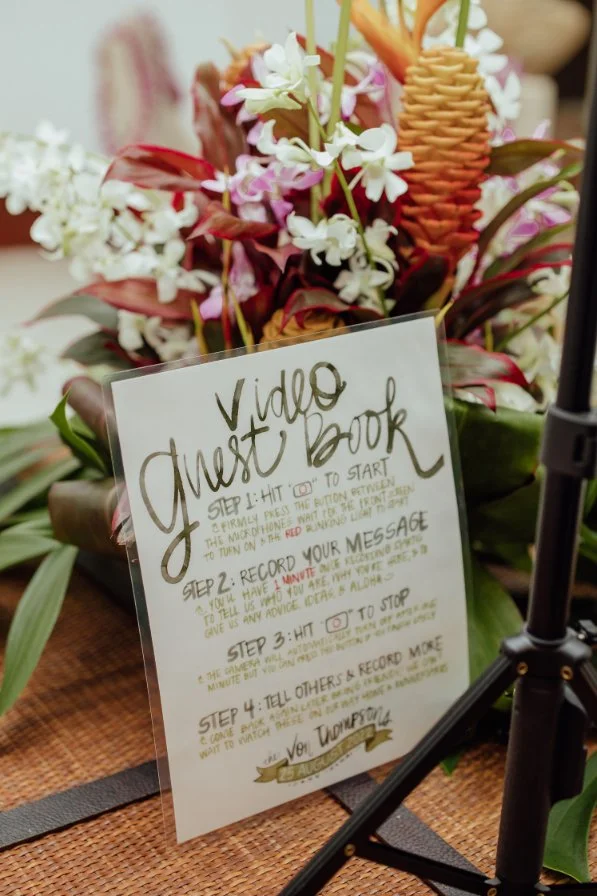 Video
guest Book
STEP 1: HIT " " TO START
FIRMLY PRESS THE BUTTON BETWEEN
THE MICROPHONES. WAIT FOR THE FRONT SCREEN
TO TURN ON & THE RED BLINKING LIGHT TO START
STEP 2: RECORD YOUR MESSAGE
YOU'LL HAVE 1 MINUTE ONCE RECORDING STARTS
TO TELL US WHO YOU ARE, WHY YOU'RE HERE, &
GIVE US ANY ADVICE, IDEAS, & ALOHA
STEP 3: HIT " " TO STOP
THE CAMERA WILL AUTOMATICALLY TURN OFF AFTER ONE
MINUTE BUT YOU CAN PRESS THE BUTTON IF YOU FINISH EARLY
STEP 4: TELL OTHERS & RECORD MORE
COME BACK AGAIN LATER, BRING FRIENDS, WE CAN'T
WAIT TO WATCH THESE ON OUR WAY HOME & ANNIVERSARIES
the Von Thompsons
AUGUST